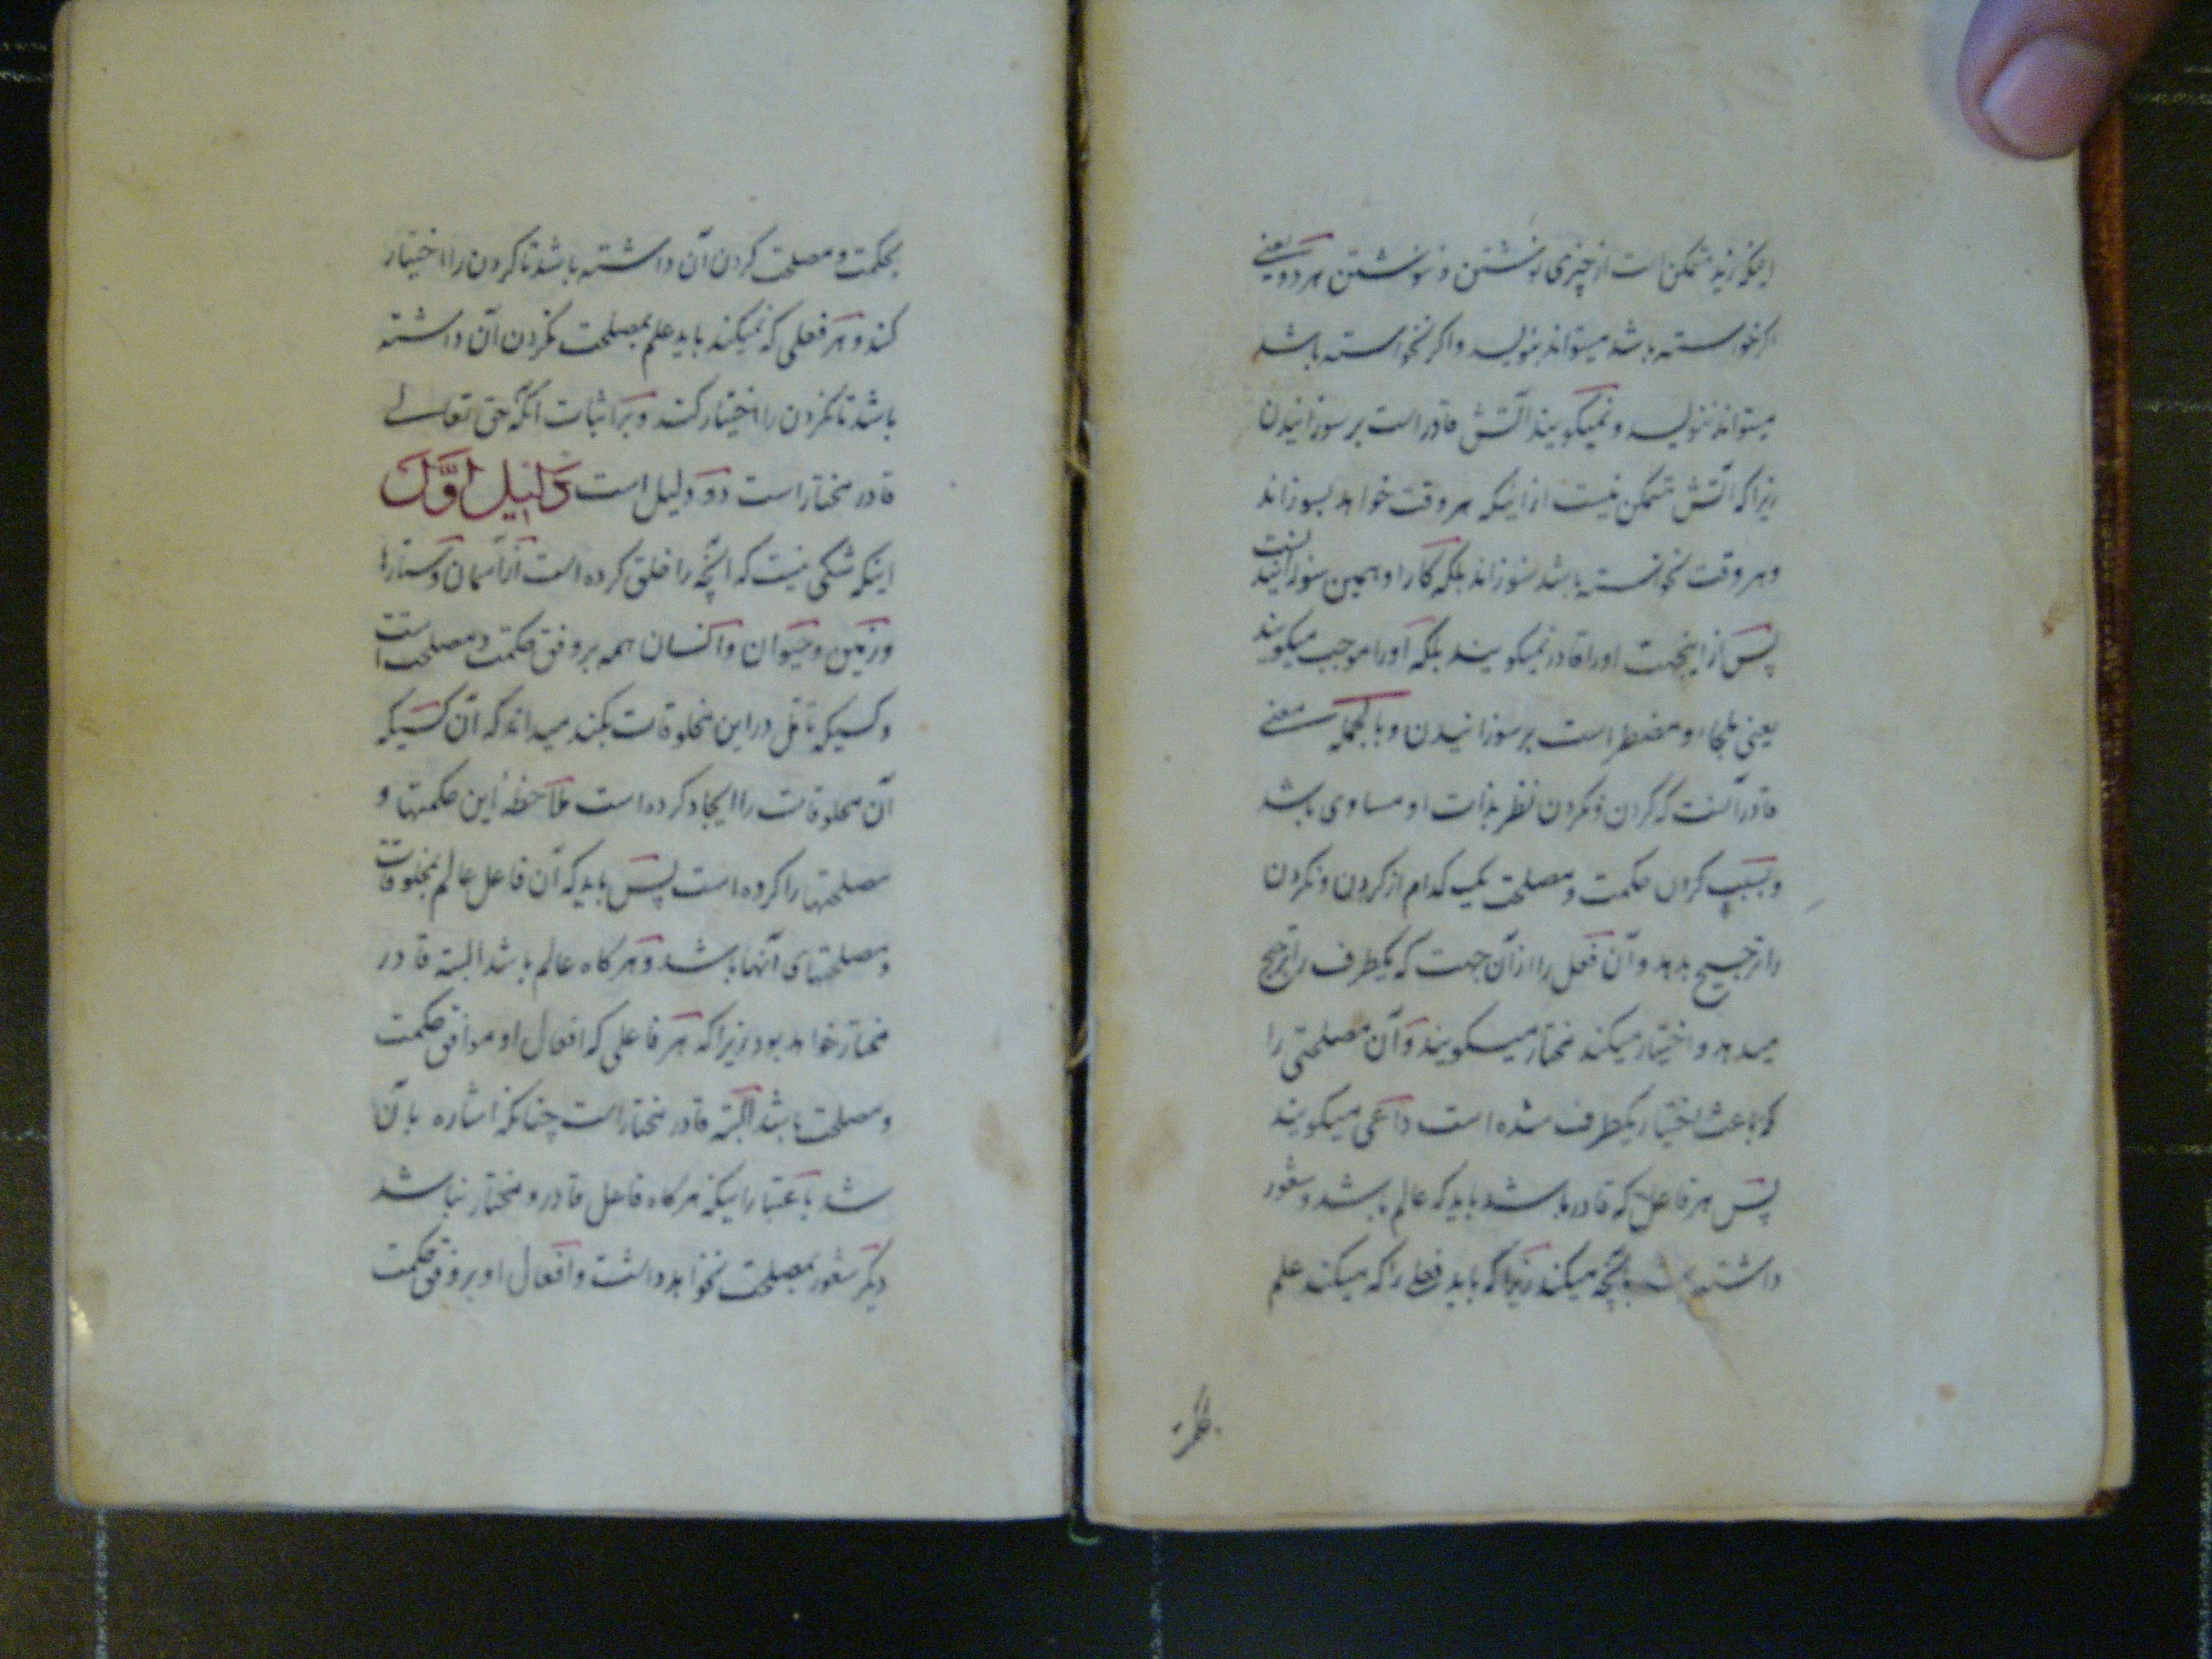 اینکه زید متمکن است از چیزی نوشتن و ننوشتن هر دو یعنی
اگر خواسته باشد میتواند بنویسد و اگر نخواسته باشد
میتواند ننویسد و نمیکویند آتش قادر است بر سوزانیدن
زیرا که آتش متمکن نیست از اینکه هر وقت خواهد بسوزاند
و هر وقت نخواسته باشد نسوزاند بلکه کار او همین سوزانیدنست
پس از اینجهت او را قادر نمیکویند بلکه او را موجب میکویند
یعنی ملجاء و مضطر است بر سوزانیدن و بالجمله معنی
قادر آنست که کردن و نکردن نظر بذات او مساوی باشد
و بسبب کردن حکمت و مصلحت یک کدام از کردن و نکردن
را ترجیح بدهد و آن فعل را از آن جهت که یکطرف را ترجیح
میدهد و اختیار میکند مختار میکویند و آن مصلحتی را
که باعث اختیار یکطرف شده است داعی میکویند
پس هر فاعل که قادر باشد باید که عالم باشد و شعور
داشته باشد بآنچه میکند زیرا که باید فعلی را که میکند علم
بحکمت و مصلحت کردن آن داشته باشد تا کردن را اختیار
کند و هر فعلی که نمیکند باید علم بمصلحت نکردن آن داشته
باشد تا نکردن را اختیار کند و بر اثبات آنکه حق تعالی
قادر مختار است دو دلیل است دلیل اوّل
اینکه شکی نیست که آنچه را خلق کرده است از آسمان و ستارها
و زمین و حیوان و انسان همه بر وفق حکمت و مصلحت است
و کسیکه تامل در این مخلوقات بکند میداند که آن کسیکه
آن مخلوقات را ایجاد کرده است ملاحظهٔ این حکمتها و
مصلحتها را کرده است پس باید که آن فاعل عالم بمخلوقات
و مصلحتهای آنها باشد و هر کاه عالم باشد البته قادر
مختار خواهد بود زیرا که هر فاعلی که افعال او موافق حکمت
و مصلحت باشد البته قادر مختار است چنانکه اشاره بآن
شد باعتبار اینکه هر کاه فاعل قادر و مختار نباشد
دیکر شعور بمصلحت نخواهد داشت و افعال او بر وفق حکمت